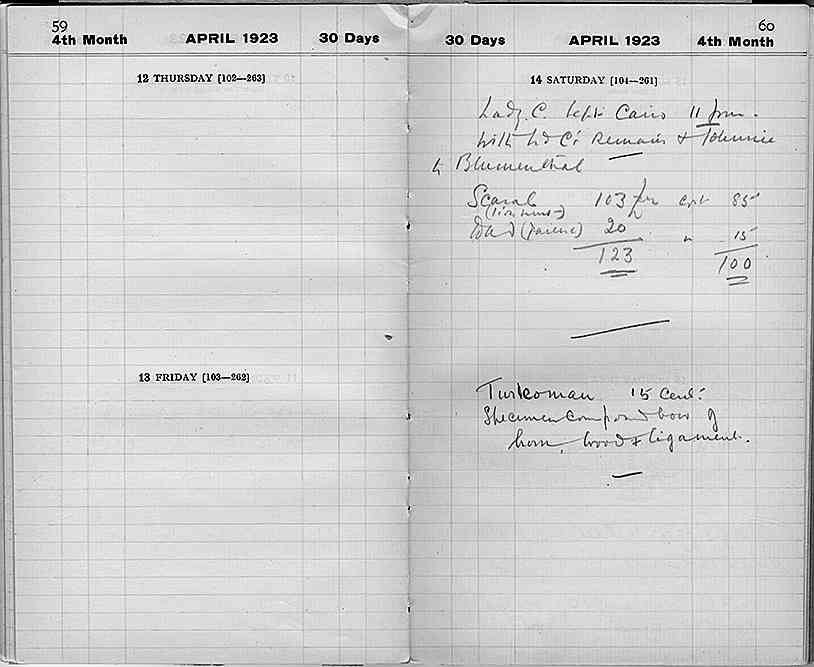 59
4th Month APRIL 1923 30 Days
12 THURSDAY [102—263]
13 FRIDAY [103—262]
60
30 Days APRIL 1923 4th Month
14 SATURDAY [104—261]
Lady. C. left Cairo 11 pm.
with Ld C's Remains & Johnnie
to Blumenthal
Scarab 103 for cost 85
(lion hunt)
(faience) 20 " 15
123 100
Turkoman 15 Cent:
Specimen compound bow of
horn, wood & ligament.